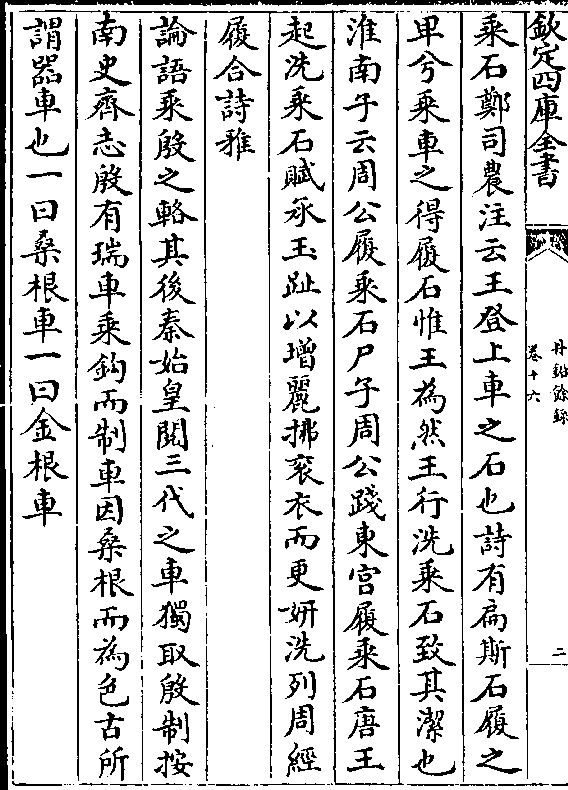 欽定四庫全書
丹鉛餘錄
卷十六
二
乘石鄭司農注云王登上車之石也詩有扁斯石履之
卑兮乘車之得履石惟王為然王行洗乘石致其潔也
淮南子云周公履乘石尸子周公踐東宮履乘石唐王
起洗乘石賦承玉趾以增麗拂衮衣而更妍洗列周經
履合詩雅
論語乘殷之輅其後秦始皇閱三代之車獨取殷制按
南史齊志殷有瑞車乘鈎而制車因桑根而為色古所
謂器車也一曰桑根車一曰金根車